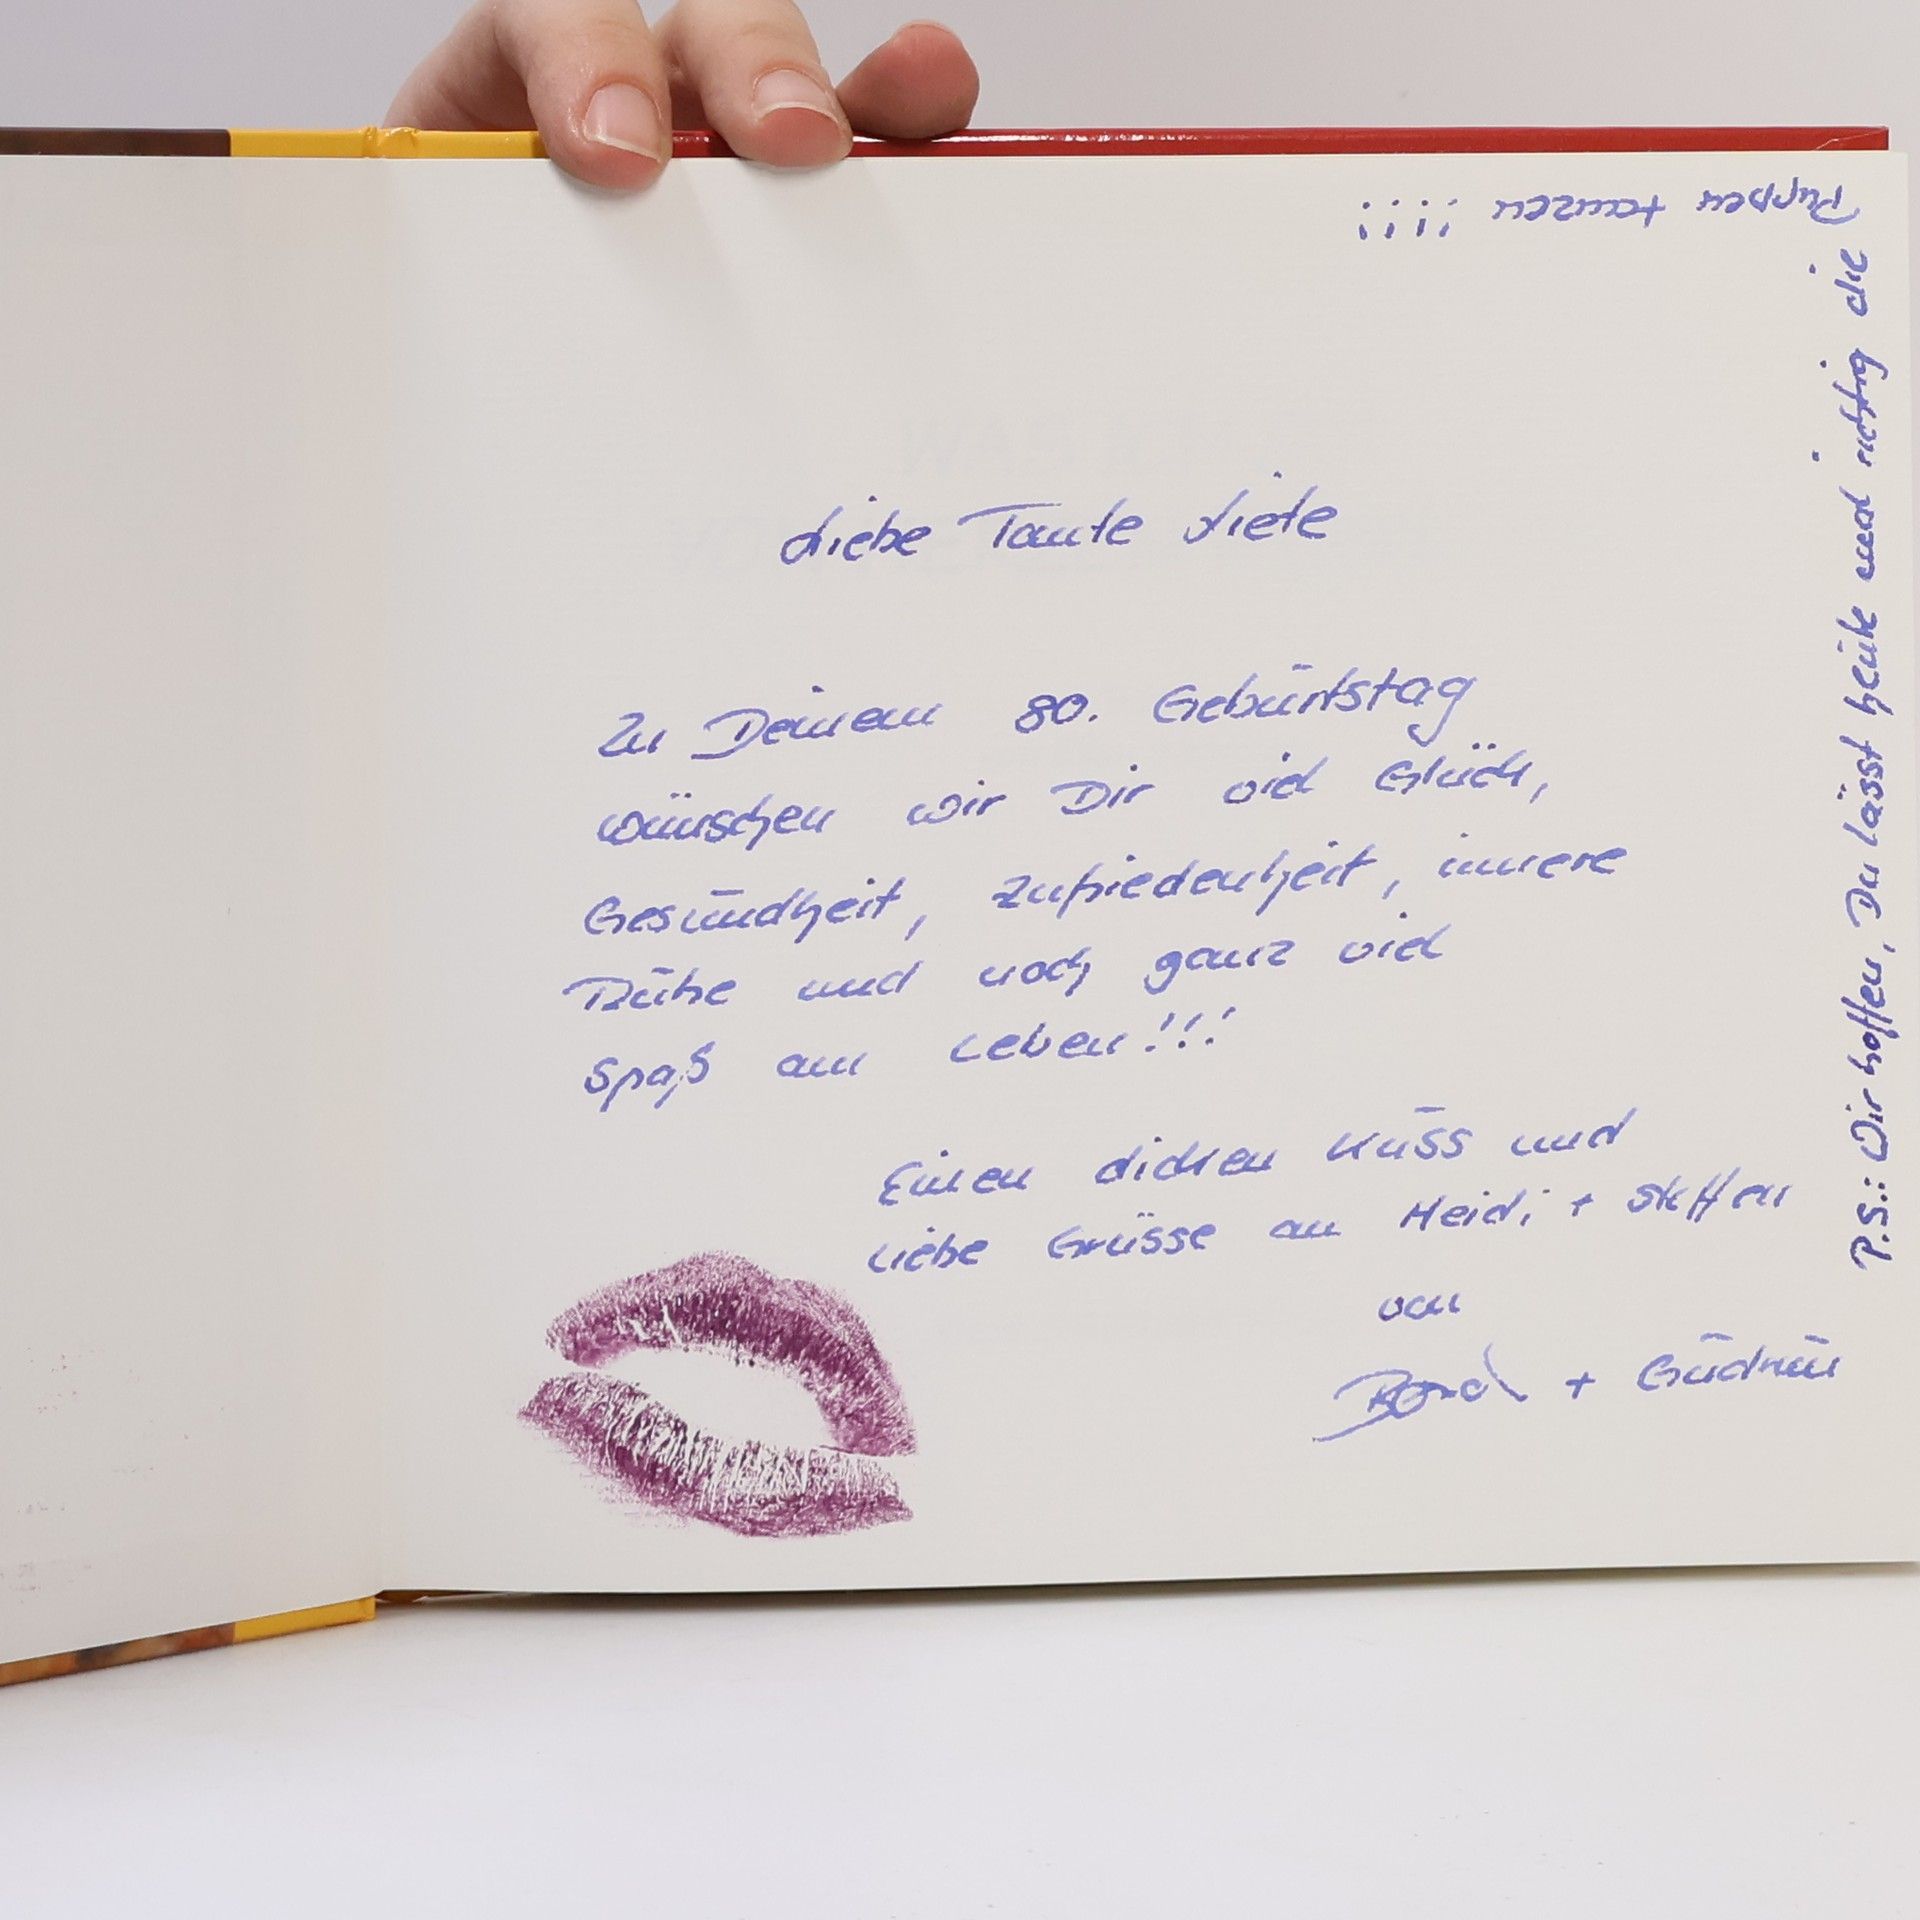 Liebe Tante Liete
Zu Deinem 80. Geburtstag
wünschen wir Dir viel Glück,
Gesundheit, Zufriedenheit, innere
Ruhe und noch ganz viel
Spaß am Leben!!!
Einen dicken Kuss und
Liebe Grüsse an Heidi + Steffen
von
+ Gudrun
P.S.: Wir hoffen, Du lässt heute mal richtig die
Puppen tanzen !!!!